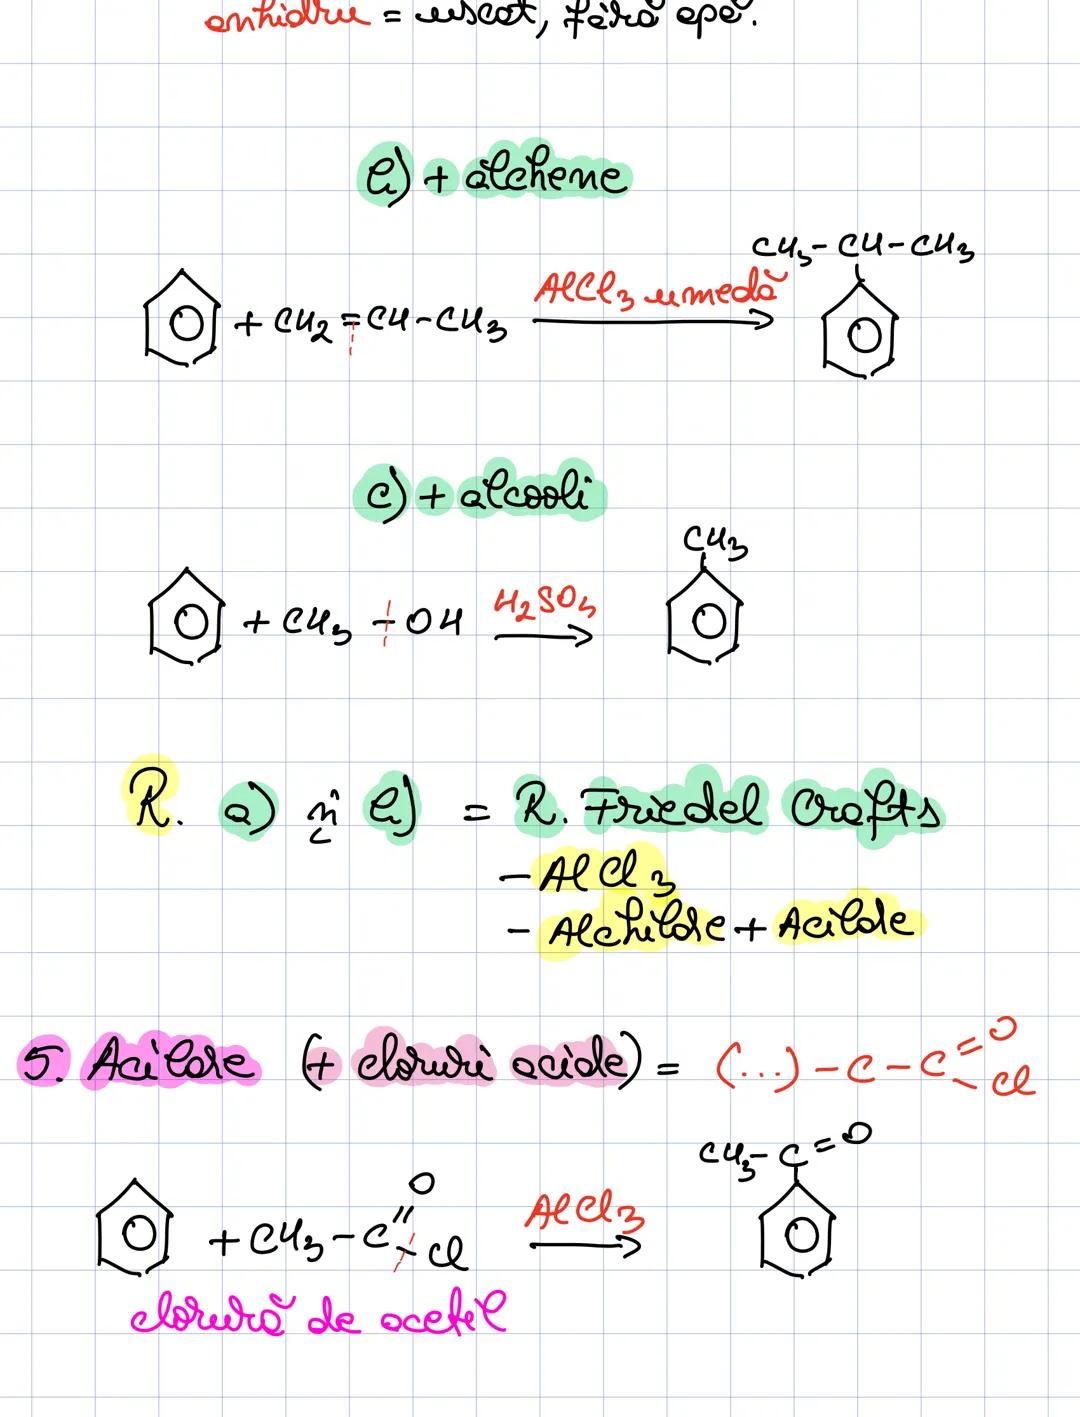 anhidru = uscat, fără apă.
b) + alchene
CH3-CH-CH3
+ CH2=CH-CH3
AlCl3 umedă
c) + alcooli
CH3
+ CH3-OH
H2SO4
R. a) și b) = R. Friedel Crafts
- AlCl3
- Alchilare + Acilare
5. Acilare (+ cloruri acide) = (...)-C-C=O
Cl
CH3-C=O
O
+ CH3-C-Cl
AlCl3
clorură de acetil